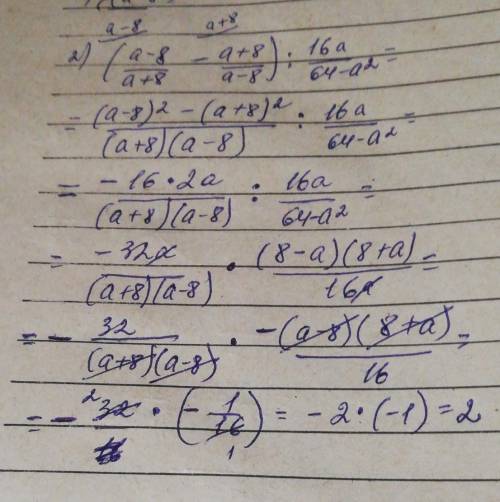 a-8 a+8
2) (a-8/a+8 - a+8/a-8) : 16a/64-a² =
= (a-8)² - (a+8)²/(a+8)(a-8) : 16a/64-a² =
= -16·2a/(a+8)(a-8) : 16a/64-a² =
= -32a/(a+8)(a-8) · (8-a)(8+a)/16a =
= - 32/(a+8)(a-8) · -(a-8)(8+a)/16 =
= - 2 32 · (-1/16 1) = -2·(-1) = 2